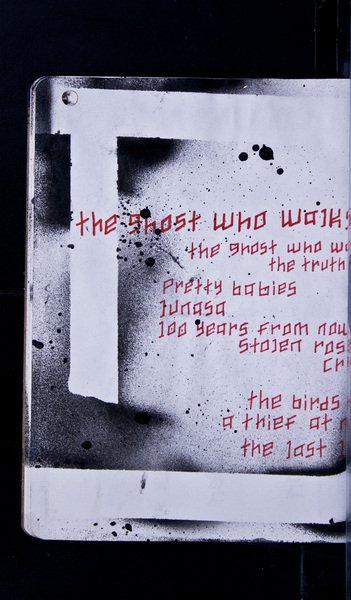 the ghost who walks
the ghost who
the truth
pretty babies
lunasa
100 years from now
stolen
the birds
a thief at
the last